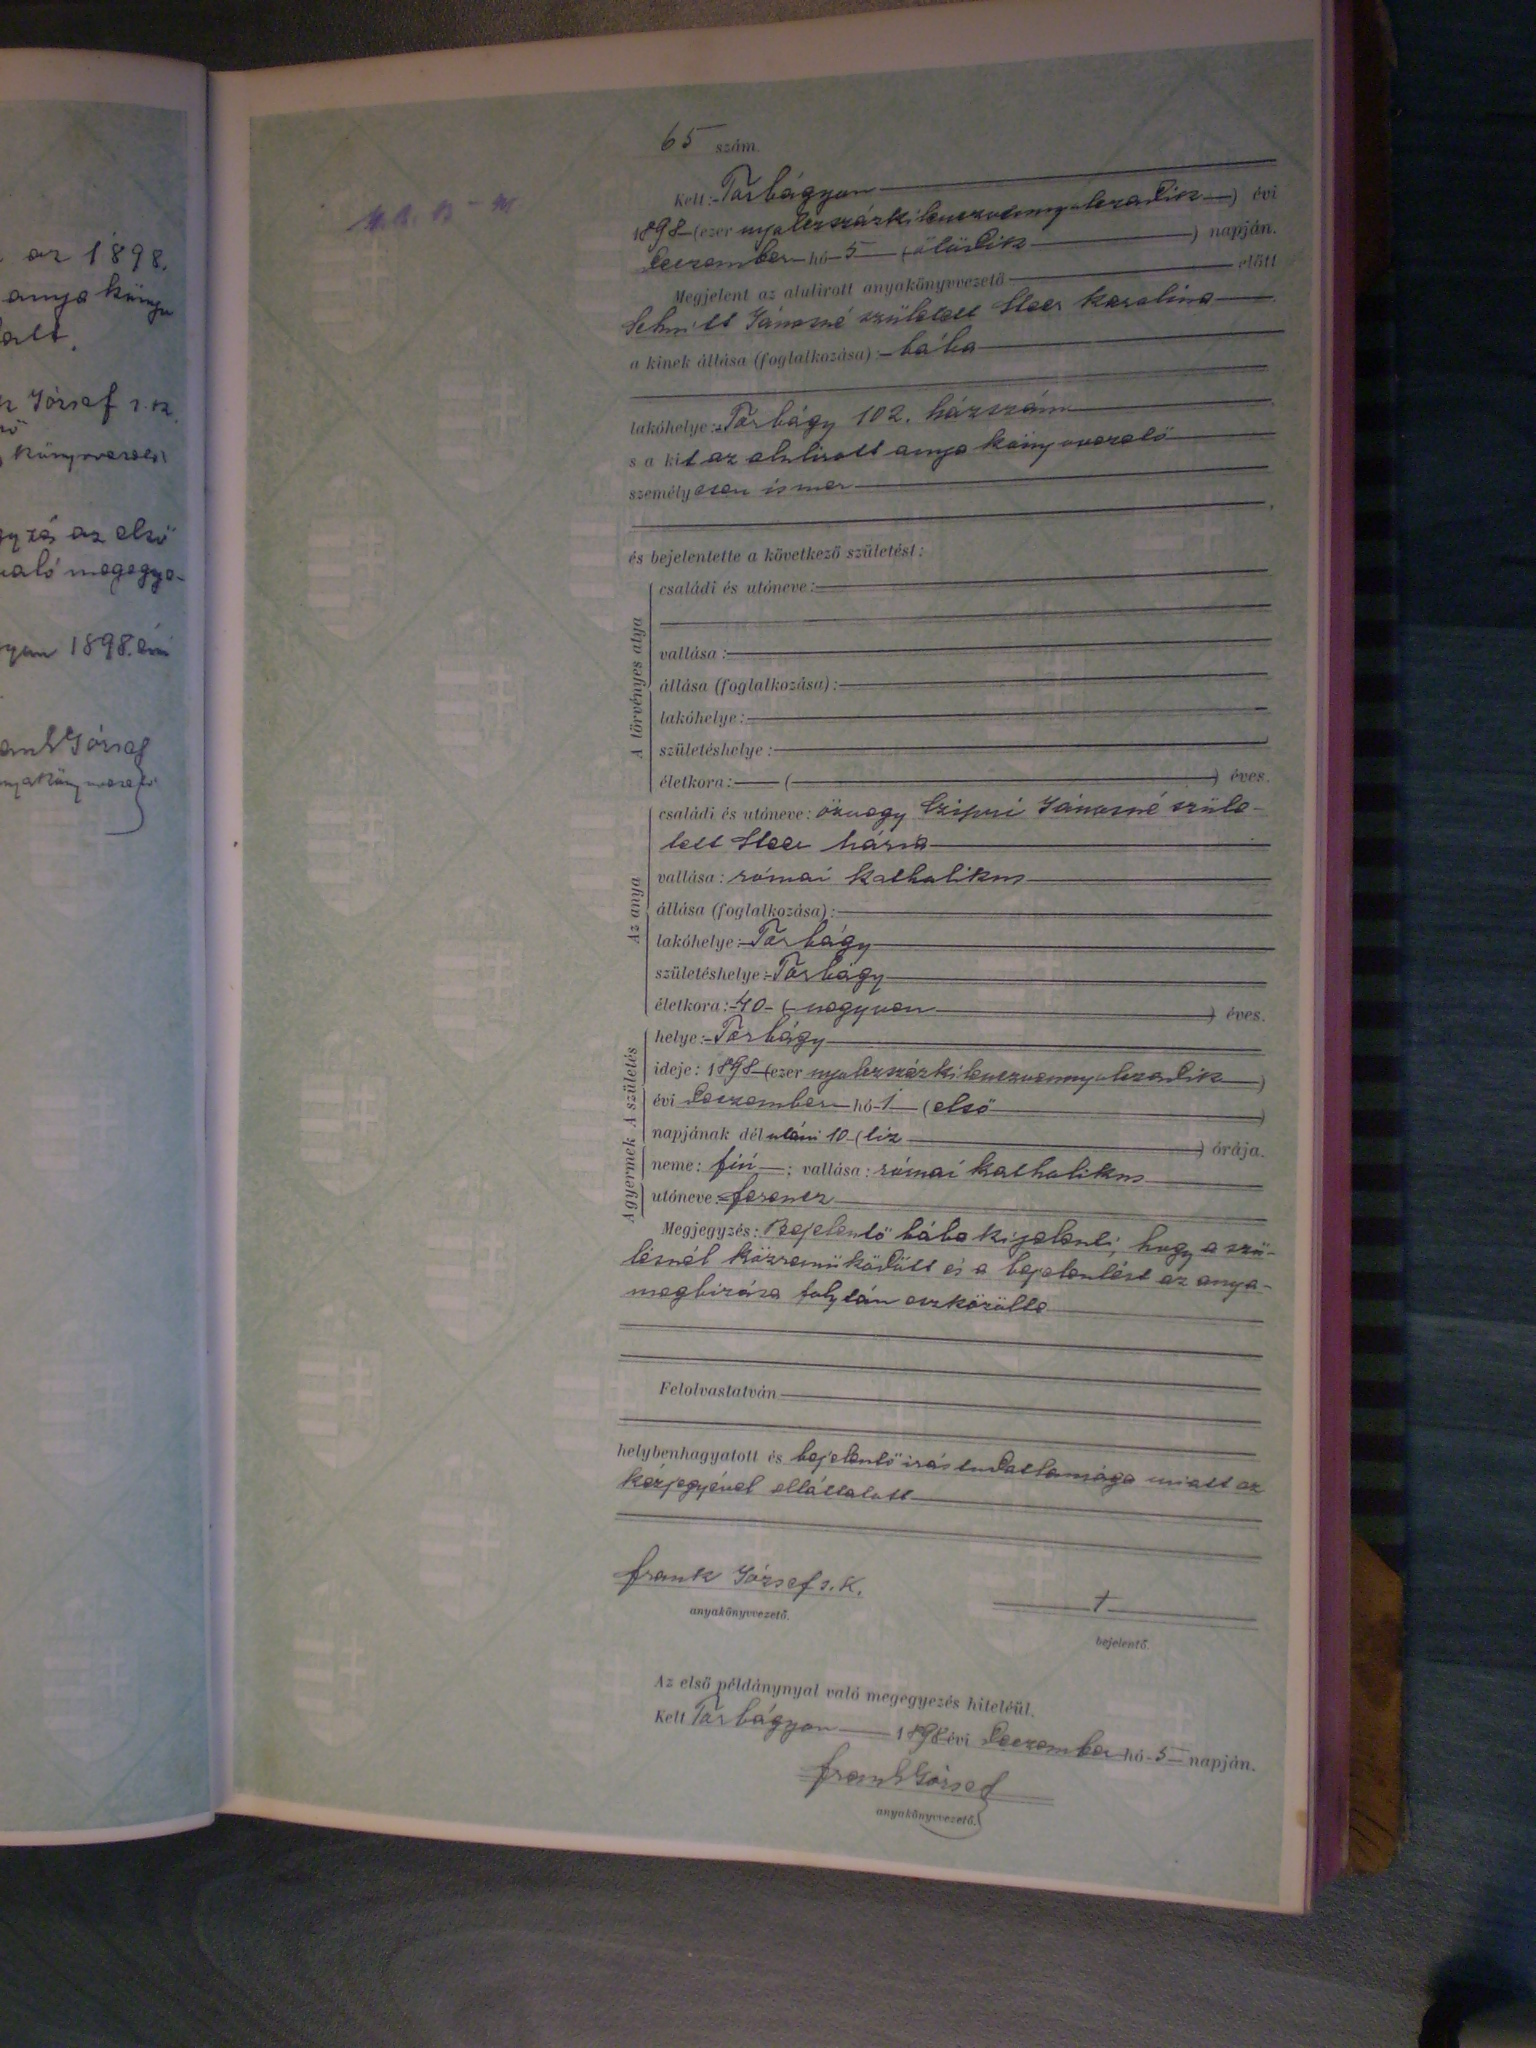 az 1898.
anyaköny
alt.
József s. k.
az első
való megegye-
1898. évi
József
65 szám.
Kelt: Torbágyon
1898 (ezer nyolczszázkilenczvennyolczadik) évi
deczember hó 5 (ötödik) napján.
Megjelent az alulirott anyakönyvvezető előtt
Schmitt Jánosné született Steer Karolina
a kinek állása (foglalkozása): bába
lakóhelye: Torbágy 102. házszám
s a kit az alulirott anyakönyvvezető
személyesen ismer
és bejelentette a következő születést:
A törvényes atya
családi és utóneve:
vallása:
állása (foglalkozása):
lakóhelye:
születéshelye:
életkora: ( ) éves.
Az anya
családi és utóneve: özvegy Szipri Jánosné szüle-
tett Steer Mária
vallása: római katholikus
állása (foglalkozása):
lakóhelye: Torbágy
születéshelye: Torbágy
életkora: 40 (negyven) éves.
A születés
helye: Torbágy
ideje: 1898 (ezer nyolczszázkilenczvennyolczadik)
évi deczember hó 1 (első)
napjának délutáni 10 (tiz) órája.
A gyermek
neme: fiú; vallása: római katholikus
utóneve: Ferencz
Megjegyzés: Bejelentő bába kijelenti, hogy a szü-
lésnél közremüködött és a bejelentést az anya
megbizása folytán eszközölte
Felolvastatván
helybenhagyatott és bejelentő irástudatlansága miatt az
kézjegyével elláttatott
Frank József s. k.
anyakönyvvezető.
+
bejelentő.
Az első példánynyal való megegyezés hiteléül.
Kelt Torbágyon 1898 évi deczember hó 5 napján.
Frank József
anyakönyvvezető.